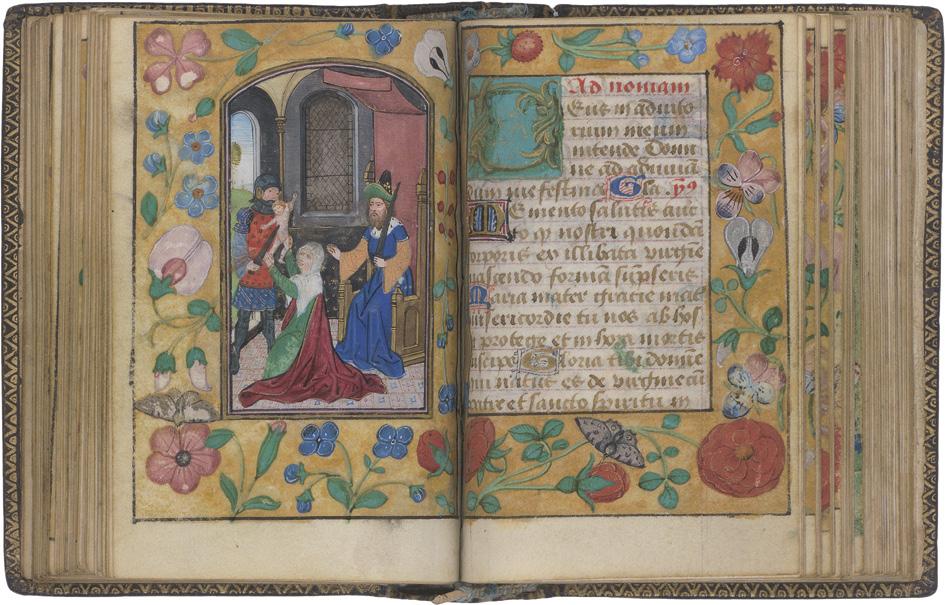 Ad nonam
Deus in adiuto
rium meum
intende Domi
ne ad adiuuā
dum me festina Gla. ps
Memento salutis auc
tor qd nostri quondā
corporis ex illibata virgine
nascendo formā sumpseris
Maria mater gratie mater
misericordie tu nos ab hos
te protege et in hora mortis
suscipe Gloria tibi domine
qui natus es de virgine cū
patre et sancto spiritu in